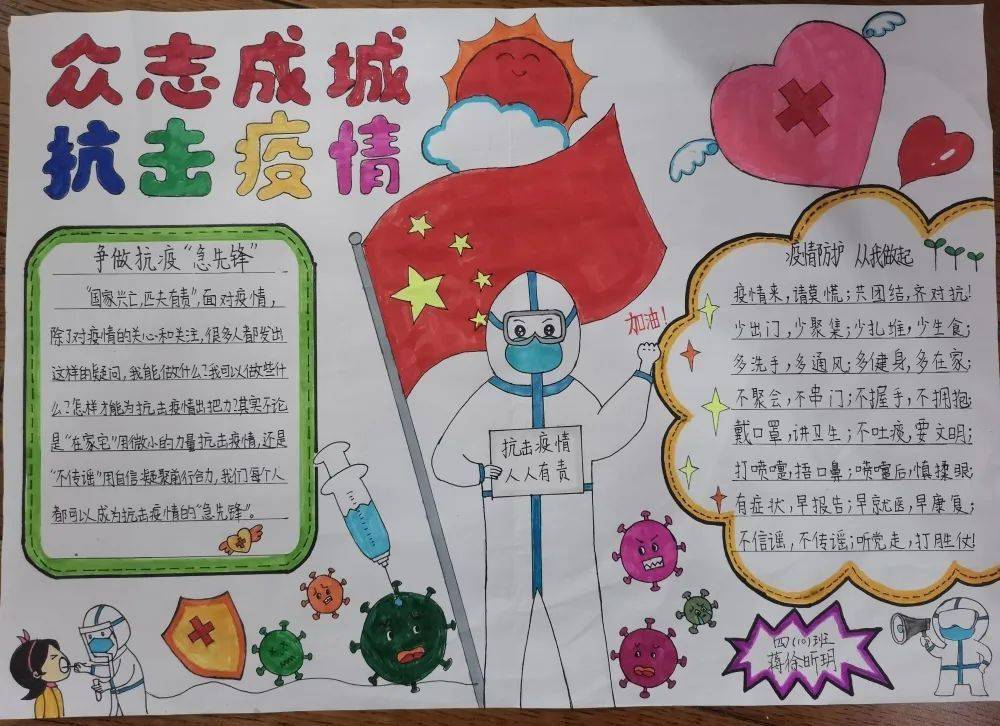 众志成城
抗击疫情
争做抗疫“急先锋”
“国家兴亡,匹夫有责”,面对疫情,
除了对疫情的关心和关注,很多人都发出
这样的疑问,我能做什么?我可以做些什
么?怎样才能为抗击疫情出把力?其实不论
是“在家宅”用微小的力量抗击疫情,还是
“不传谣”用自信凝聚前行合力,我们每个人
都可以成为抗击疫情的“急先锋”。
加油!
抗击疫情
人人有责
疫情防护 从我做起
疫情来,请莫慌;共团结,齐对抗!
少出门,少聚集;少扎堆,少生食;
多洗手,多通风;多健身,多在家;
不聚会,不串门;不握手,不拥抱
戴口罩,讲卫生;不吐痰,要文明;
打喷嚏,捂口鼻;喷嚏后,慎揉眼;
有症状,早报告;早就医,早康复;
不信谣,不传谣;听党走,打胜仗!
四(10)班
蒋徐昕玥